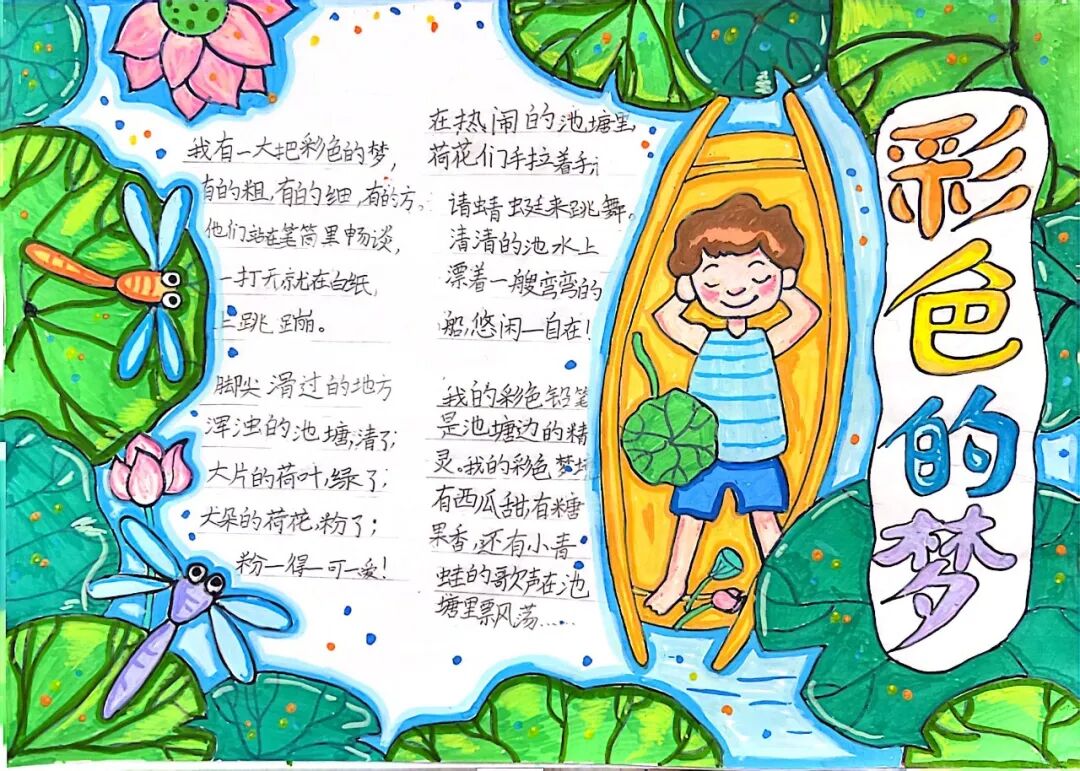 彩色的梦
我有一大把彩色的梦,
有的粗,有的细,有的方,
他们站在笔筒里畅谈,
一打开就在白纸
上跳蹦。
脚尖滑过的地方
浑浊的池塘,清了;
大片的荷叶,绿了;
大朵的荷花,粉了;
粉—得—可—爱!
在热闹的池塘里
荷花们手拉着手;
请蜻蜓来跳舞。
清清的池水上
漂着一艘弯弯的
船,悠闲—自在!
我的彩色铅笔
是池塘边的精
灵。我的彩色梦
有西瓜甜,有糖
果香,还有小青
蛙的歌声在池
塘里飘荡……